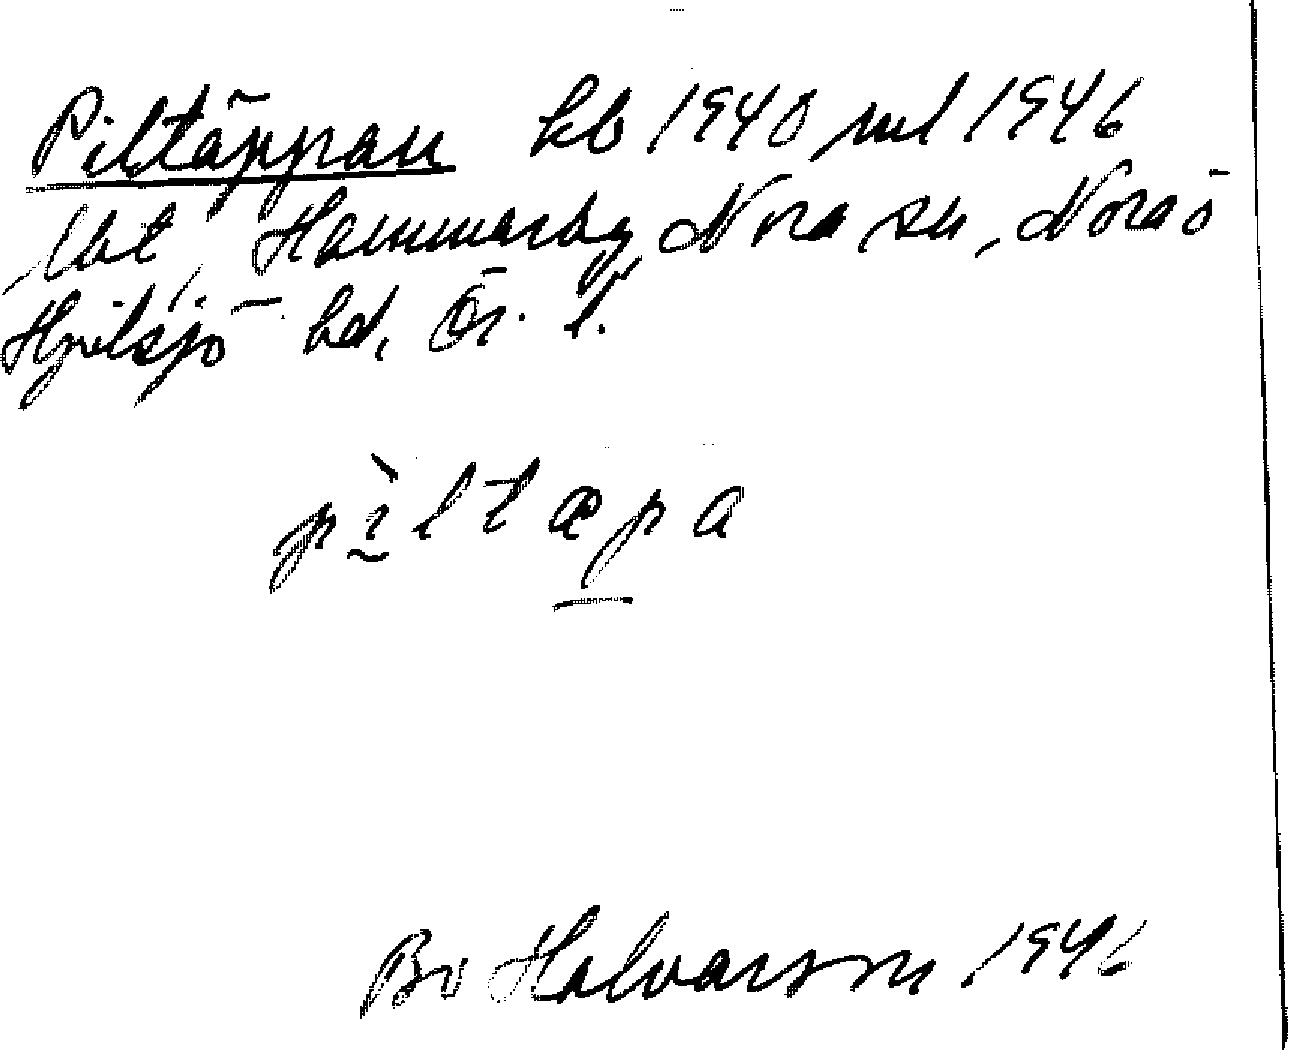 Piltäppan kb 1940 ml 1946
lbt, Hammarby, Nora sn, Nora ö
Hjulsjö hd, Ör. l.
piltæpa
Bo Halvarsson 1946